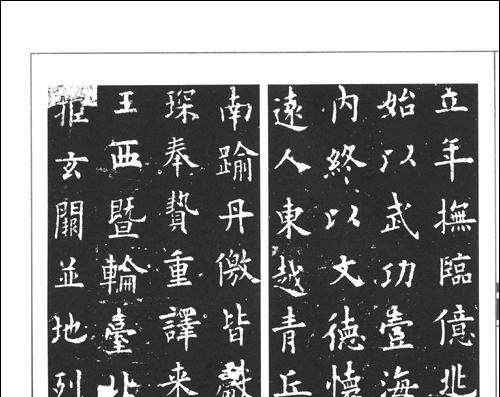 立年撫臨億兆
始以武功壹海
内終以文德懷
遠人東越青丘
南踰丹儌皆獻
琛奉贄重譯来
王西暨輪臺北
拒玄闕並地列